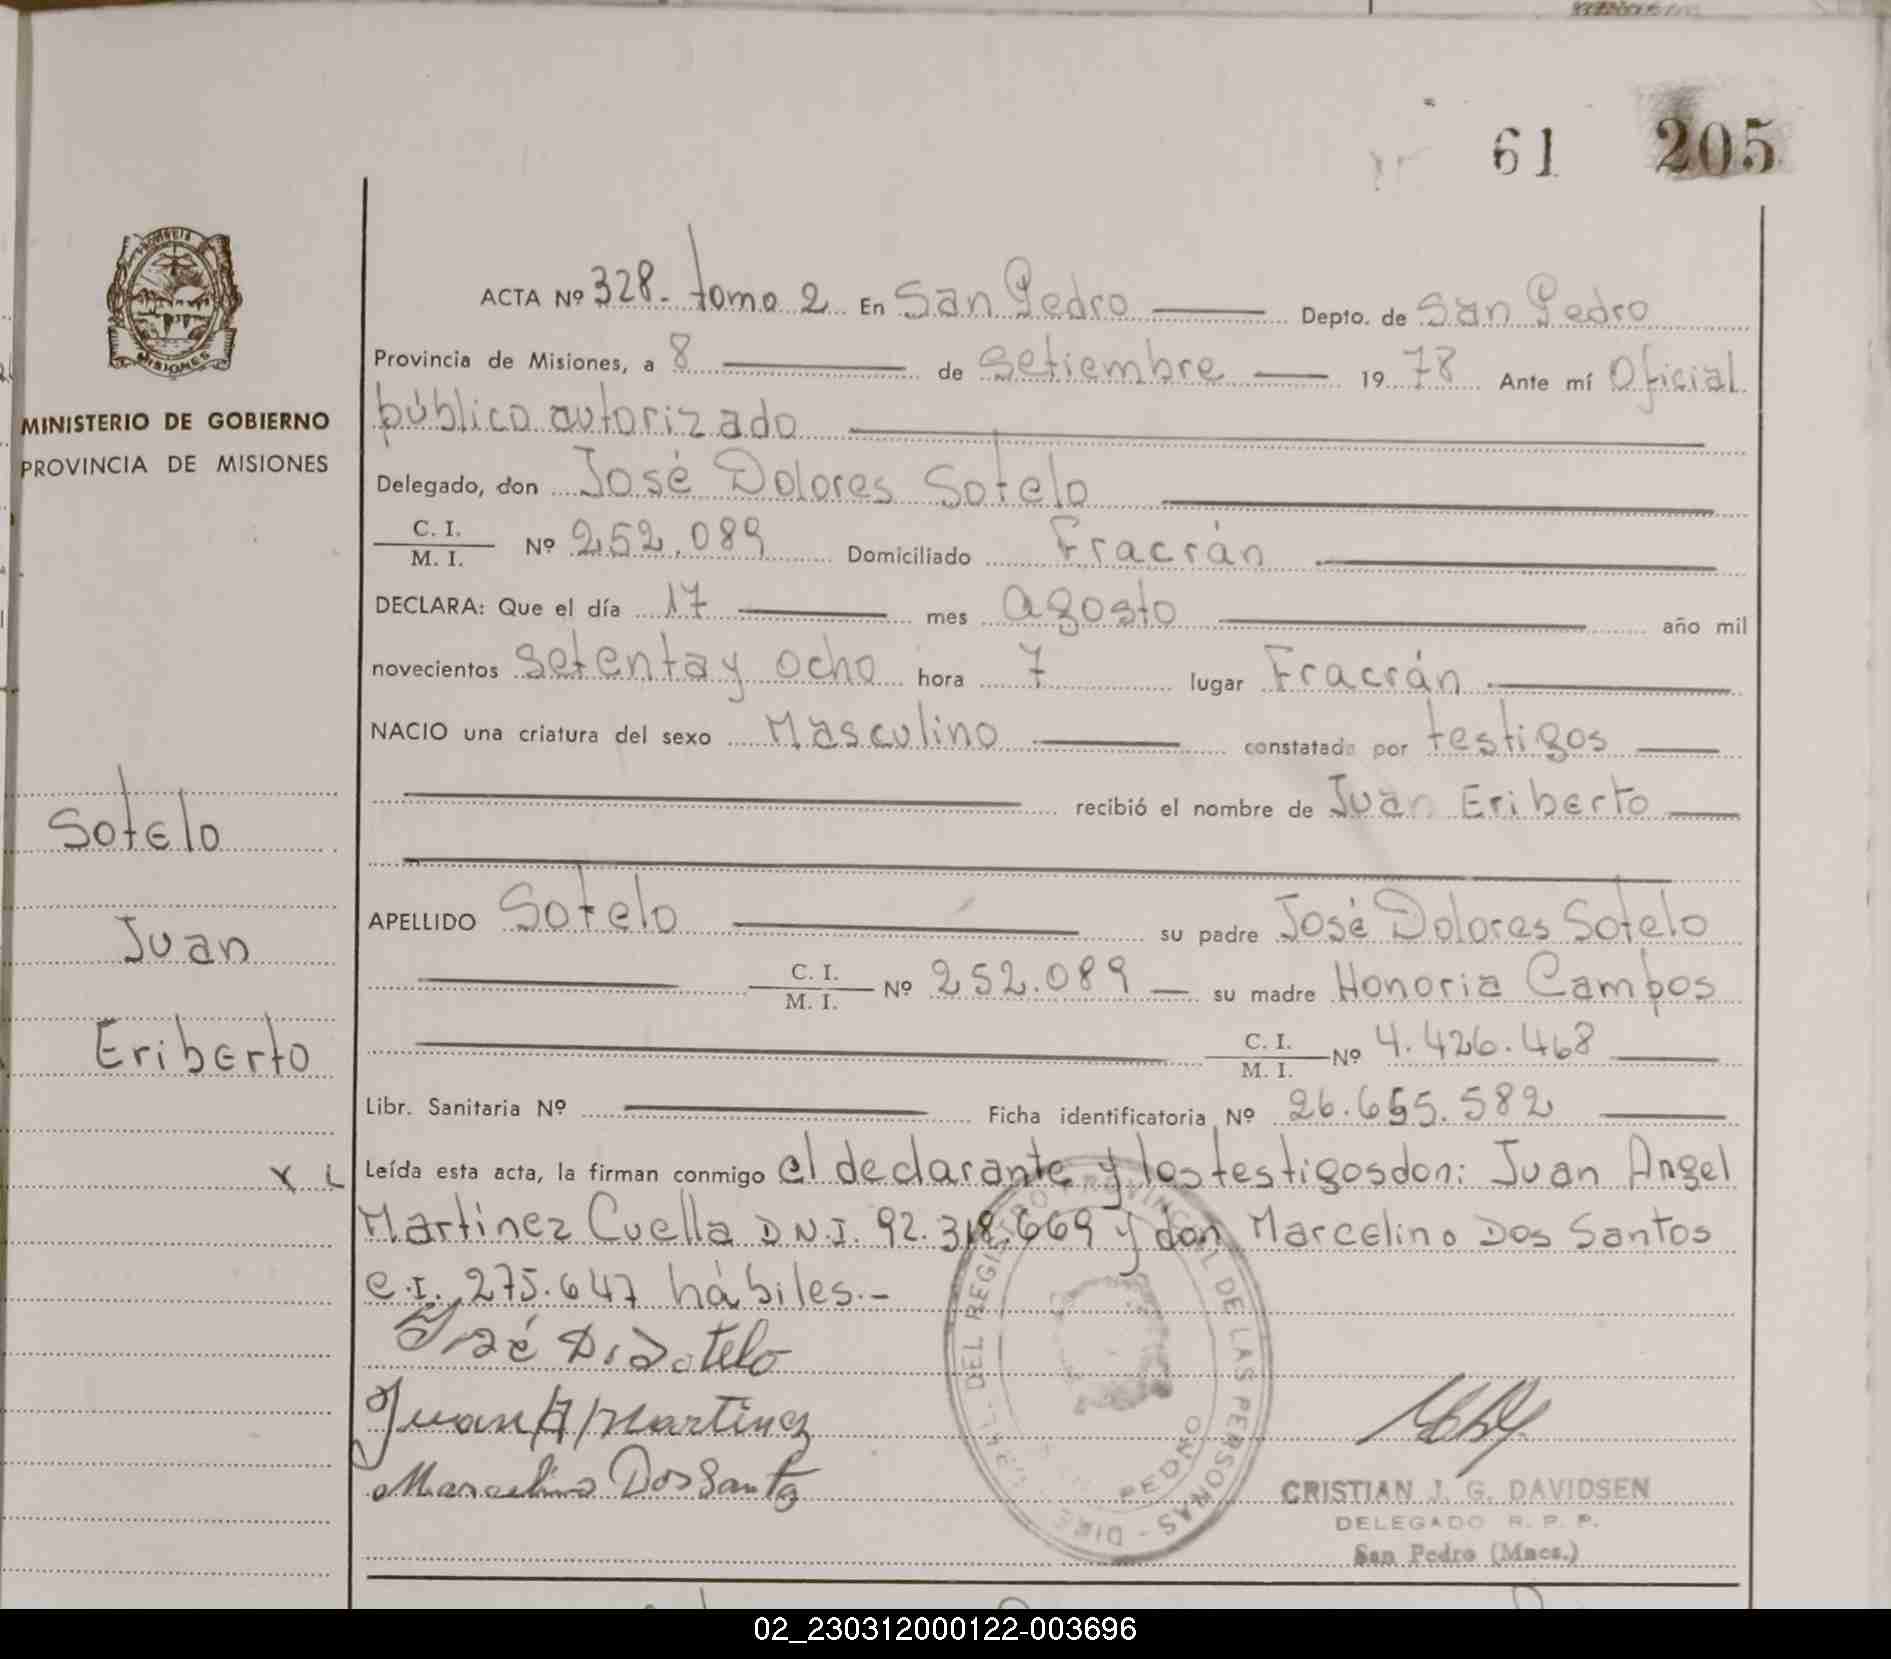 61 205
PROVINCIA
MISIONES
MINISTERIO DE GOBIERNO
PROVINCIA DE MISIONES
Sotelo
Juan
Eriberto
ACTA Nº 328- tomo 2 En San Pedro Depto. de San Pedro
Provincia de Misiones, a 8 de Setiembre 19 78 Ante mí Oficial
público autorizado
Delegado, don José Dolores Sotelo
C. I.
M. I. Nº 252.089 Domiciliado Fracrán
DECLARA: Que el día 17 mes agosto año mil
novecientos setenta y ocho hora 7 lugar Fracrán
NACIO una criatura del sexo Masculino constatada por testigos
recibió el nombre de Juan Eriberto
APELLIDO Sotelo su padre José Dolores Sotelo
C. I.
M. I. Nº 252.089 su madre Honoria Campos
C. I.
M. I. Nº 4.426.468
Libr. Sanitaria Nº Ficha identificatoria Nº 26.655.582
Leída esta acta, la firman conmigo el declarante y los testigos don: Juan Angel
Martinez Cuella D N.I. 92.318.669 y don Marcelino Dos Santos
C.I. 275.647 hábiles.-
José D. Sotelo
Juan A Martinez
Marcelino Dos Santo
DEL REGISTRO PROVINCIAL DE LAS PERSONAS
PEDRO
CRISTIAN J. G. DAVIDSEN
DELEGADO R. P. P.
San Pedro (Mnes.)
02_230312000122-003696